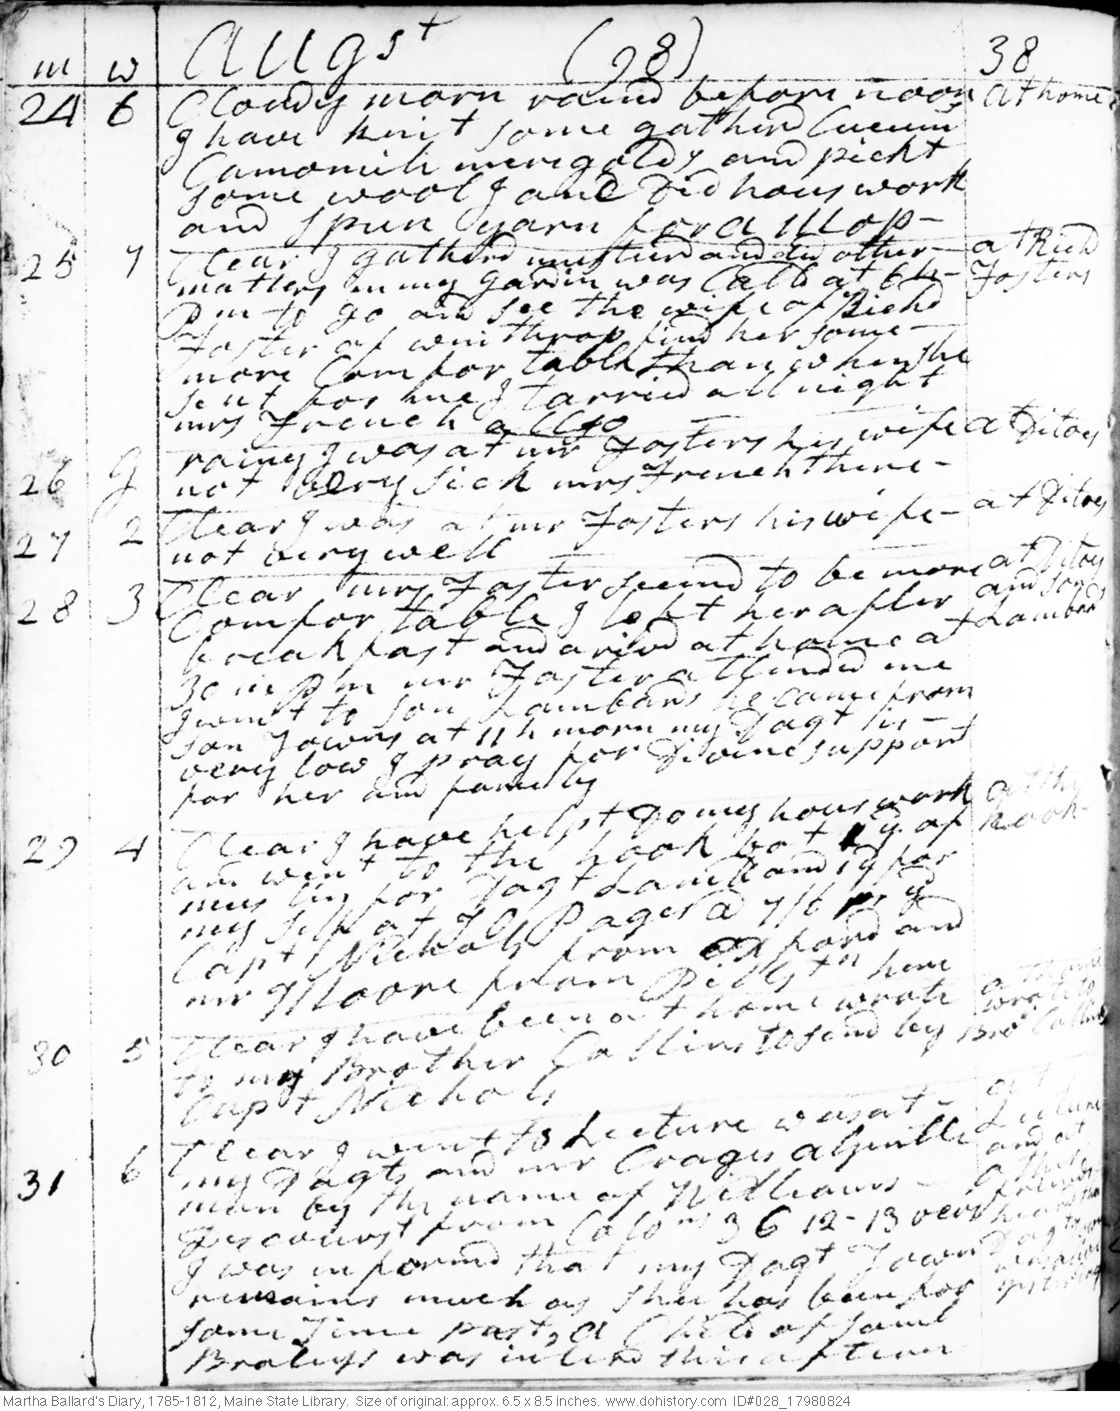 m w Augst (98) 38
24 6 Cloudy morn raind before noon at home
I have knit some gatherd Cucum
Camomile merigolds and pickt
some wool I and Did hous work
and spun yarn for a Mop -
25 7 Clear I gatherd mustard and did other - at Richd
matters in my gardin was Calld at 6 h - Fosters
Pm to go and see the wife of Richd
Foster of winthrop find her some -
more Comfortable than when she
sent for me I tarried all night
mrs French allso
26 g rainy I was at mr Fosters his wife at Ditoes
not very sick mrs French there -
27 2 Clear I was at mr Fosters his wife - at Ditoes
not very well
28 3 Clear mrs Foster seemd to be more at Ditoes
Comfortable I left her after and son
breakfast and arivd at home at Lambards
30 m Pm mr Foster attended me
I went to son Lambards he came from
son Towns at 11 h morn my Dagt is -
very low I pray for Divine support
for her and family
29 4 Clear I have helpt Do my hous work at the
and went to the hook bot yd of hook -
muslin for Dagt Lamb and 1 yd for
my self at Pages @ 7/6 pr yd
Capt Nichols from oxford and
mr Moore from here
30 5 Clear I have been at home wrote at home
to my Brother Collins to send by wrote to
Capt Nichols Bror Collins
31 6 Clear I went to Lecture was at - at
my Dagts and mr Crages a gentle Lecture
man by the name of Williams - and at
Discourst from Colons 3 C 12 - 13 vers
I was informd that my Dagt Town
remains much as shee has been for
some Time past, a Child of Saml
Brallys was interd this aftern
Martha Ballard's Diary, 1785-1812, Maine State Library. Size of original: approx. 6.5 x 8.5 inches. www.dohistory.com ID#028_17980824